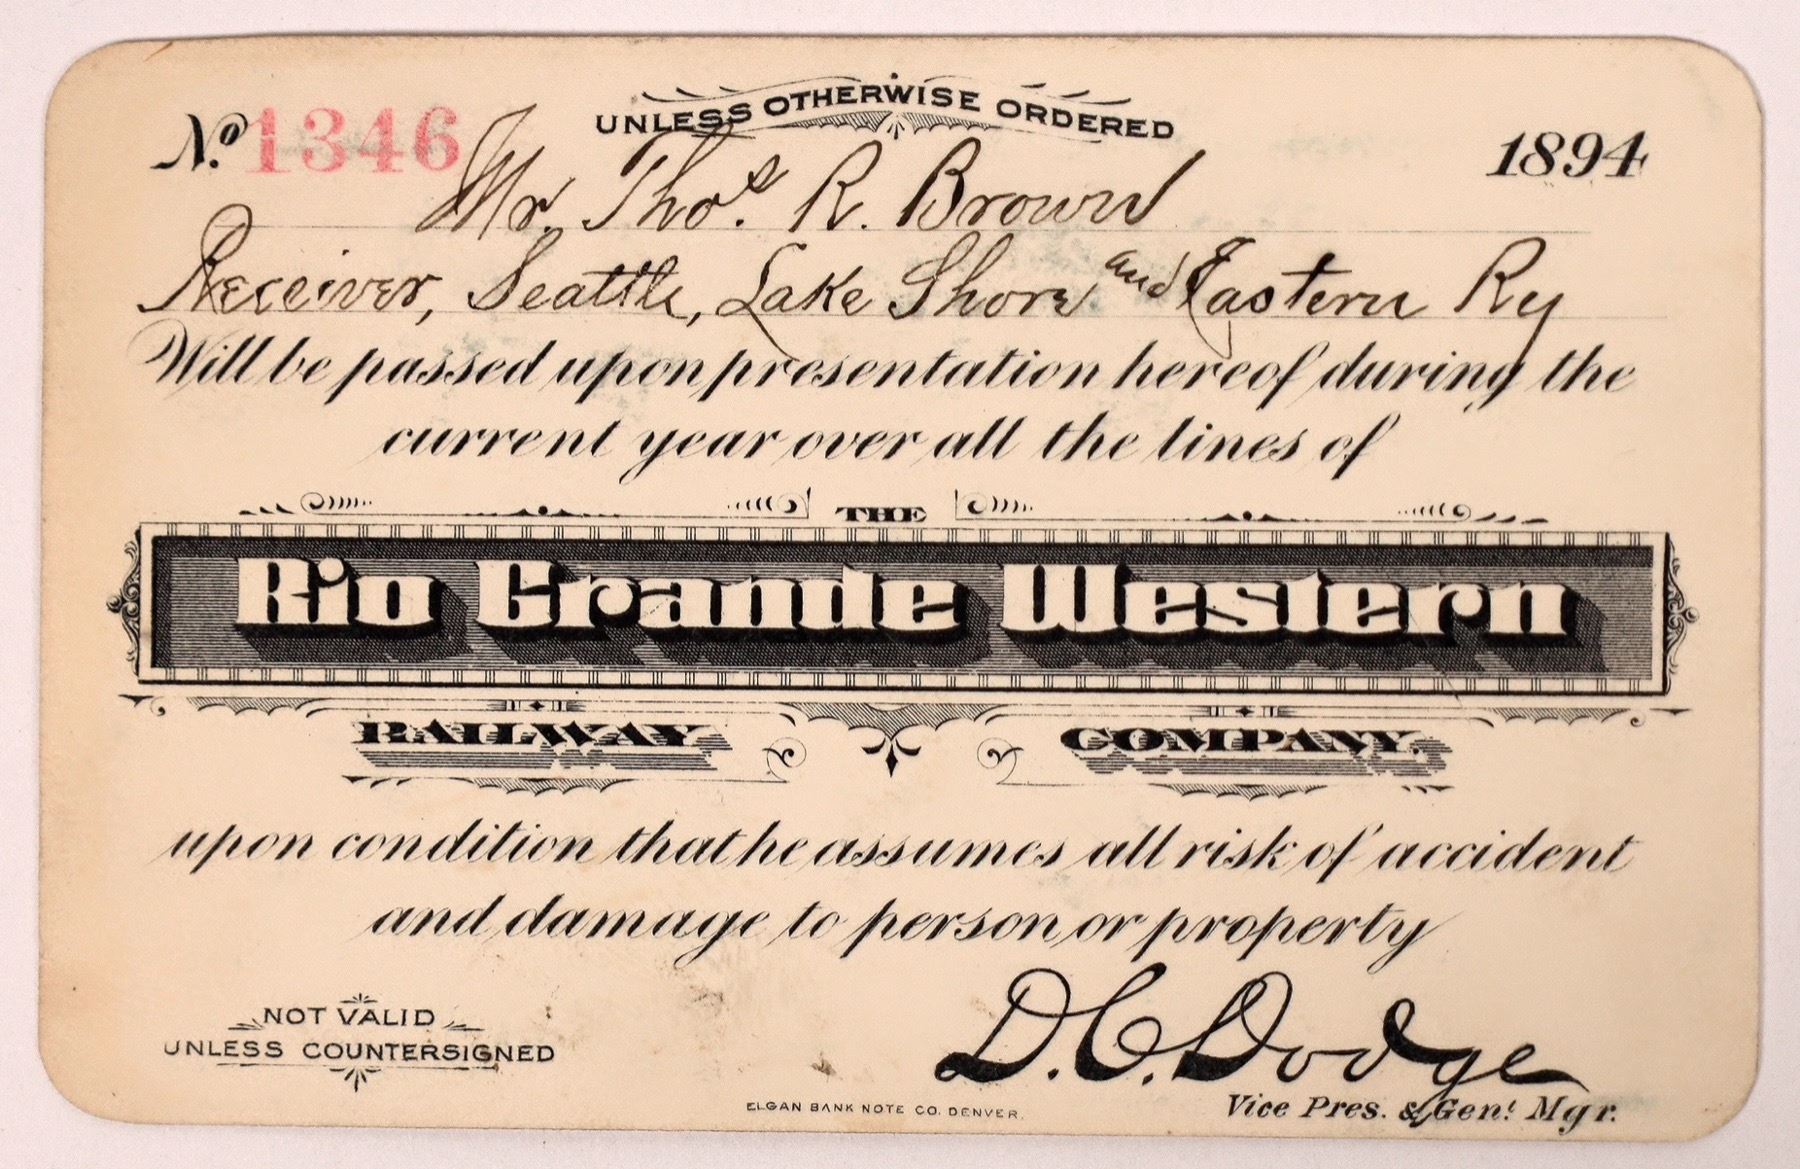 UNLESS OTHERWISE ORDERED
No. 1346
1894
Mr. Thos. R. Brown
Receiver, Seattle, Lake Shore and Eastern Ry
Will be passed upon presentation hereof during the
current year over all the lines of
THE
Rio Grande Western
RAILWAY COMPANY.
upon condition that he assumes all risk of accident
and damage to person or property
NOT VALID
UNLESS COUNTERSIGNED
D. C. Dodge
Vice Pres. & Genl. Mgr.
ELGAN BANK NOTE CO. DENVER.